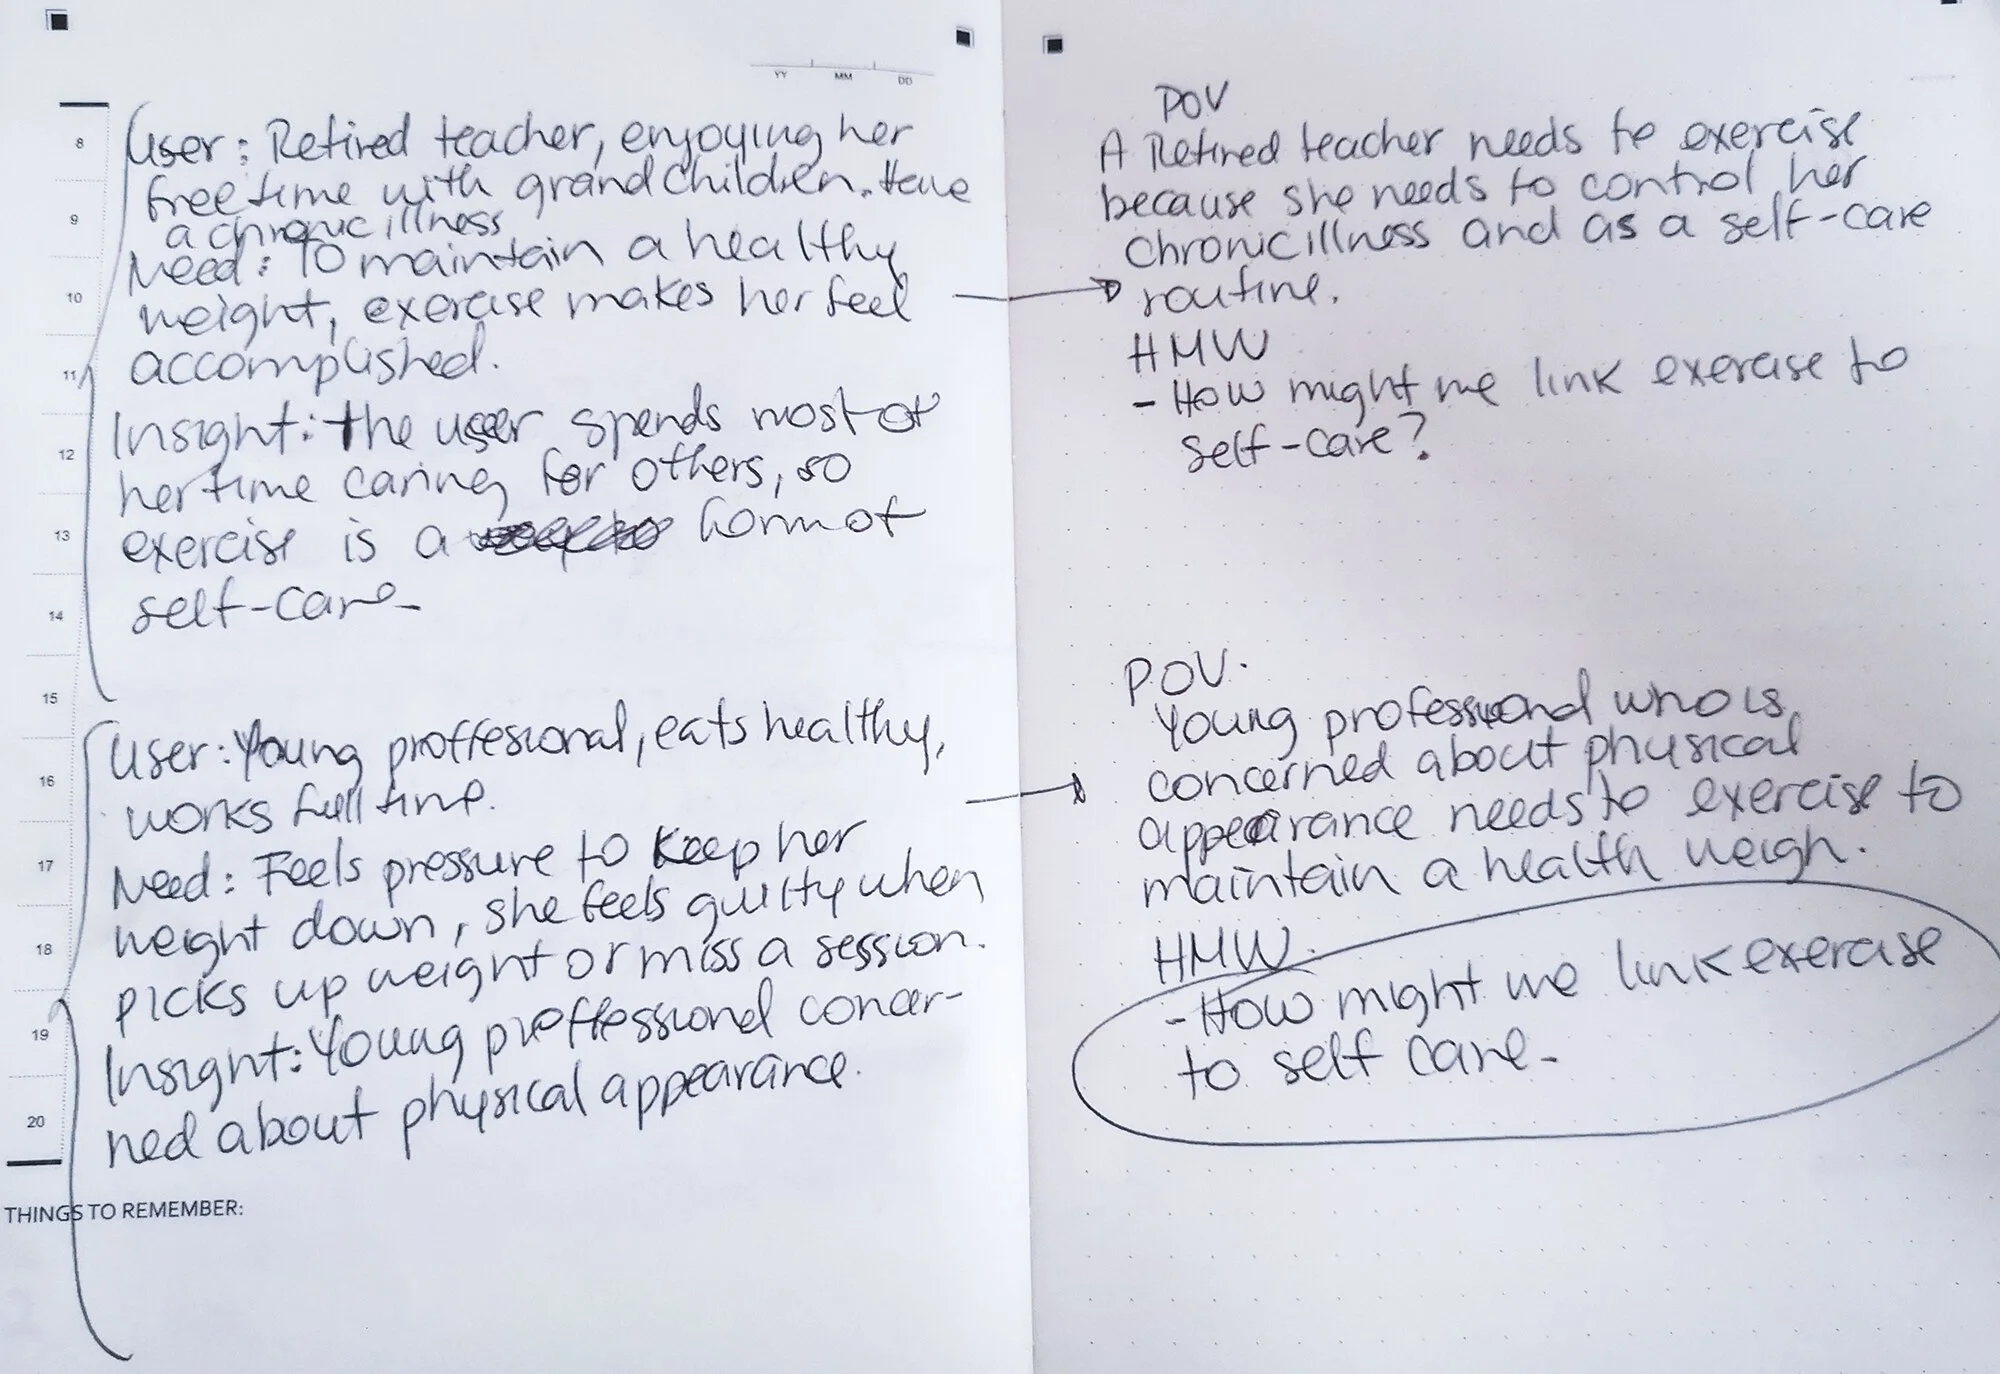 YY MM DD
8
User: Retired teacher, enjoying her
free time with grandchildren. Have
a chronic illness
9
Need: To maintain a healthy
10
weight, exercise makes her feel
accomplished.
11
Insight: the user spends most of
12
her time caring for others, so
exercise is a form of
13
self-care-
14
15
User: Young proffesional, eats healthy,
16
works full time.
Need: Feels pressure to keep her
17
weight down, she feels guilty when
18
picks up weight or miss a session.
Insight: Young proffessional concer-
19
ned about physical appearance.
20
THINGS TO REMEMBER:
POV
A Retired teacher needs to exercise
because she needs to control her
chronic illness and as a self-care
routine.
HMW
- How might we link exercise to
self-care?
POV.
Young professional who is
concerned about physical
appearance needs to exercise to
maintain a health weigh.
HMW.
- How might we link exercise
to self care-